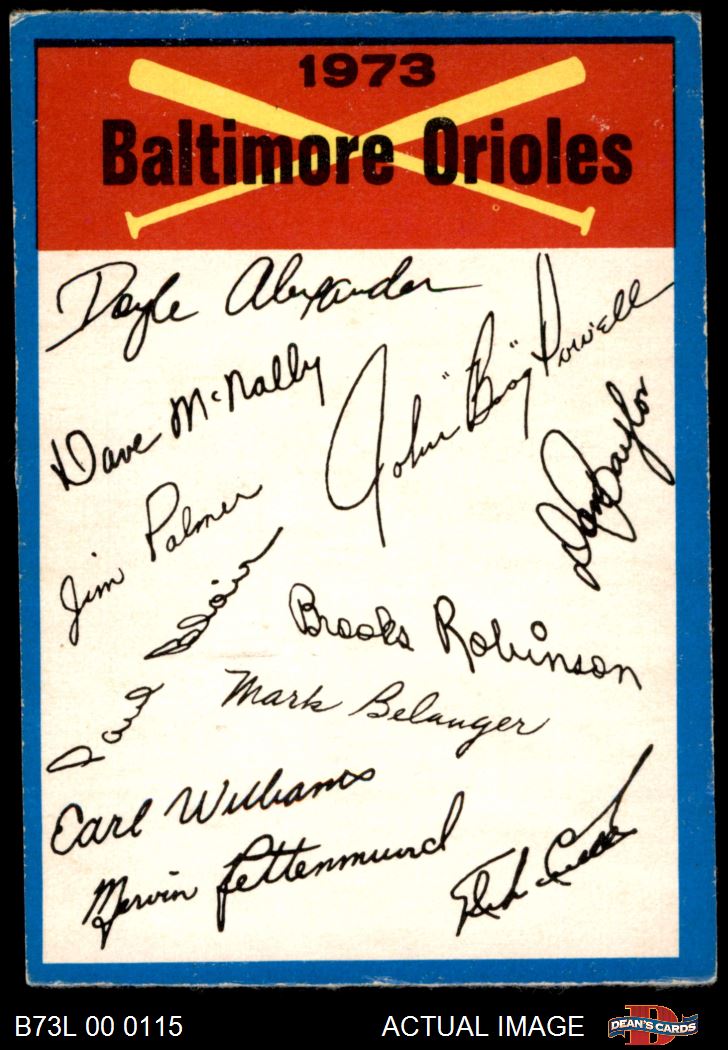 1973
Baltimore Orioles
Doyle Alexander
Dave McNally
John "Boog" Powell
Don Baylor
Jim Palmer
Paul Blair
Brooks Robinson
Mark Belanger
Earl Williams
Mervin Rettenmund
B73L 00 0115
ACTUAL IMAGE
D
DEAN'S CARDS